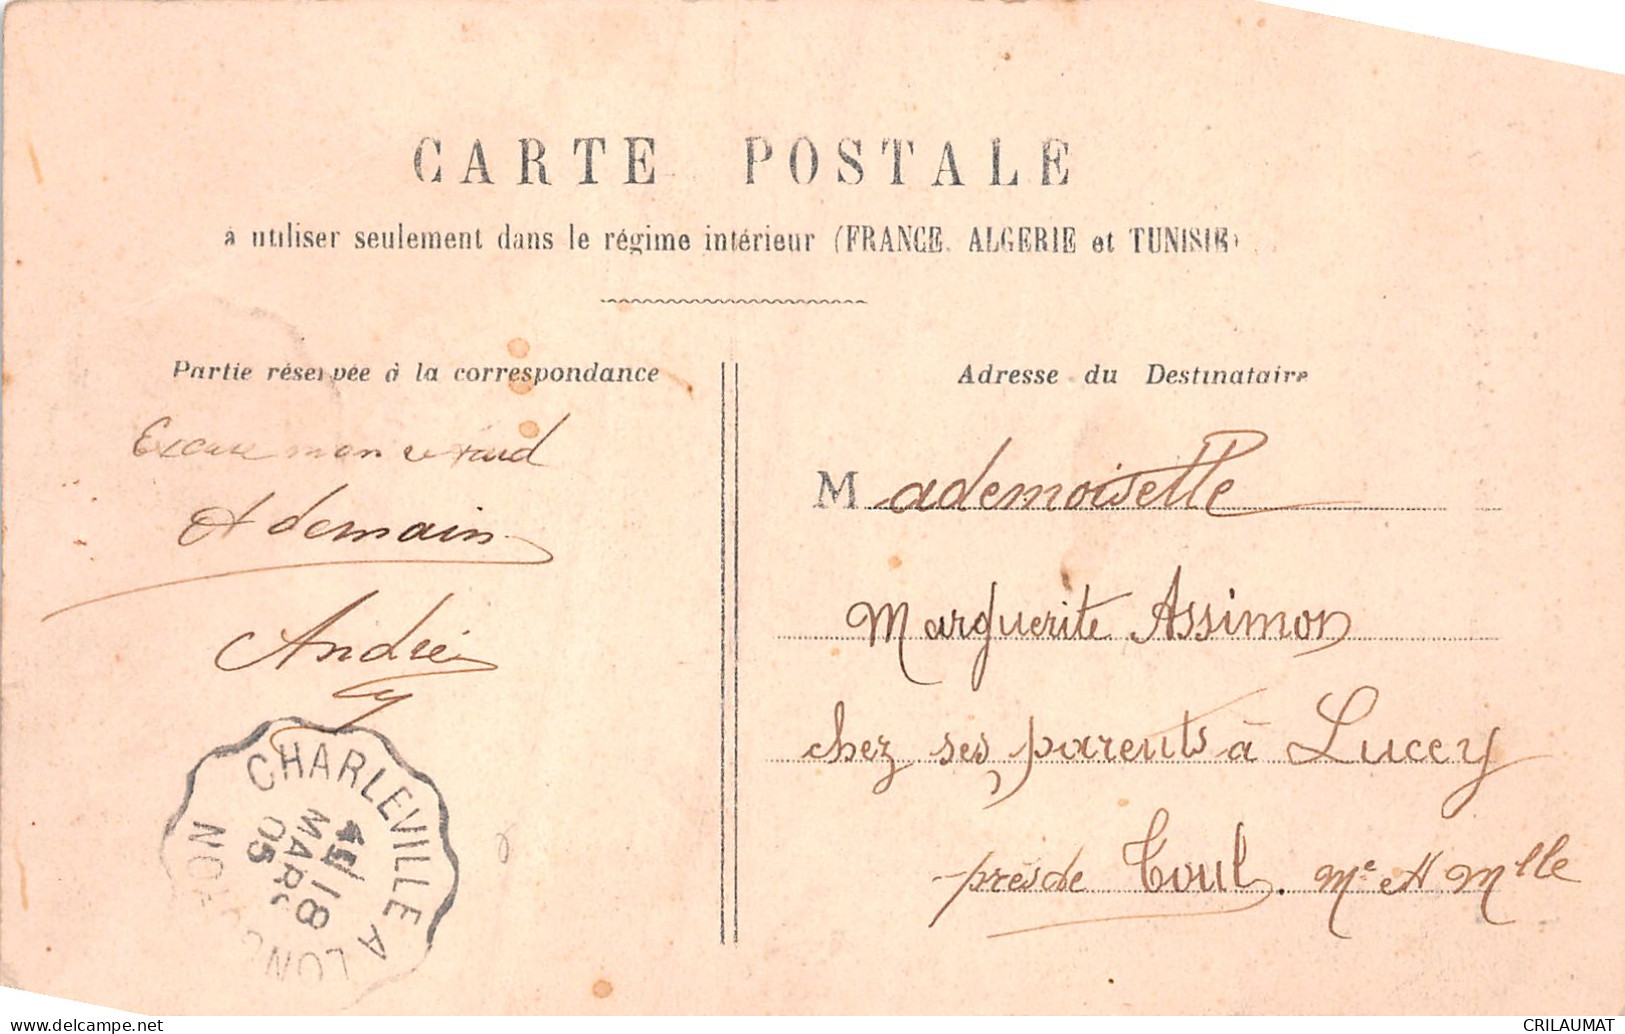 CARTE POSTALE
à utiliser seulement dans le régime intérieur (FRANCE, ALGERIE et TUNISIE)
Partie réservée à la correspondance
Adresse du Destinataire
Excuse mon retard
A demain
André
Mademoiselle
Marguerite Assimon
chez ses parents à Lucey
près de Toul. Mthe et Mlle
CHARLEVILLE A LONG
18
MARS
05
delcampe.net
CRILAUMAT